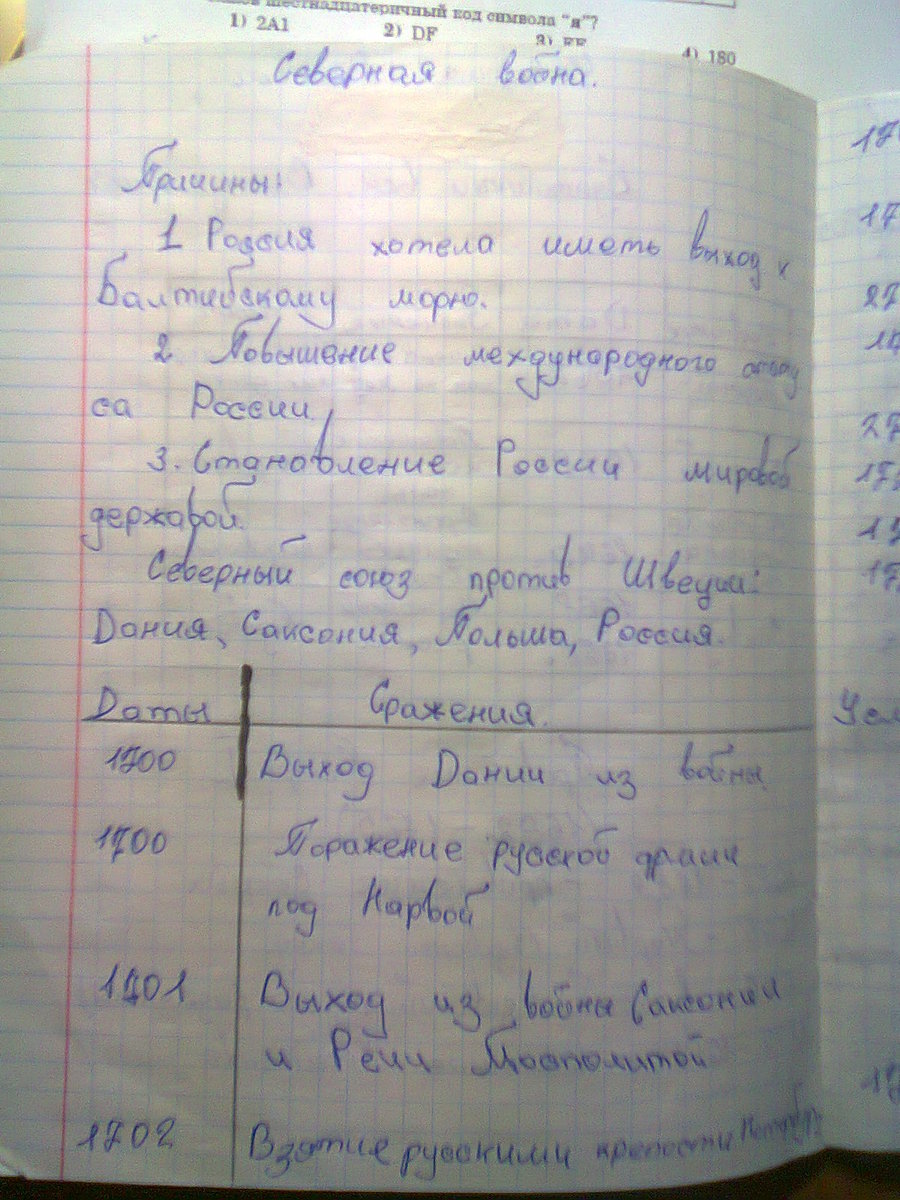 шестнадцатеричный код символа "я"?
1) 2A1 2) DF 3) FF 4) 180
Северная война.
Причины:
1 Россия хотела иметь выход к
Балтийскому морю.
2 Повышение международного
са России
3. Становление России мировой
державой.
Северный союз против Швеции:
Дания, Саксония, Польша, Россия.
Даты Сражения.
1700 Выход Дании из войны
1700 Поражение русской армии
под Нарвой
1701 Выход из войны Саксонии
и Речи Посполитой
1702 Взятие русскими крепости
17
17
27
27
Усл